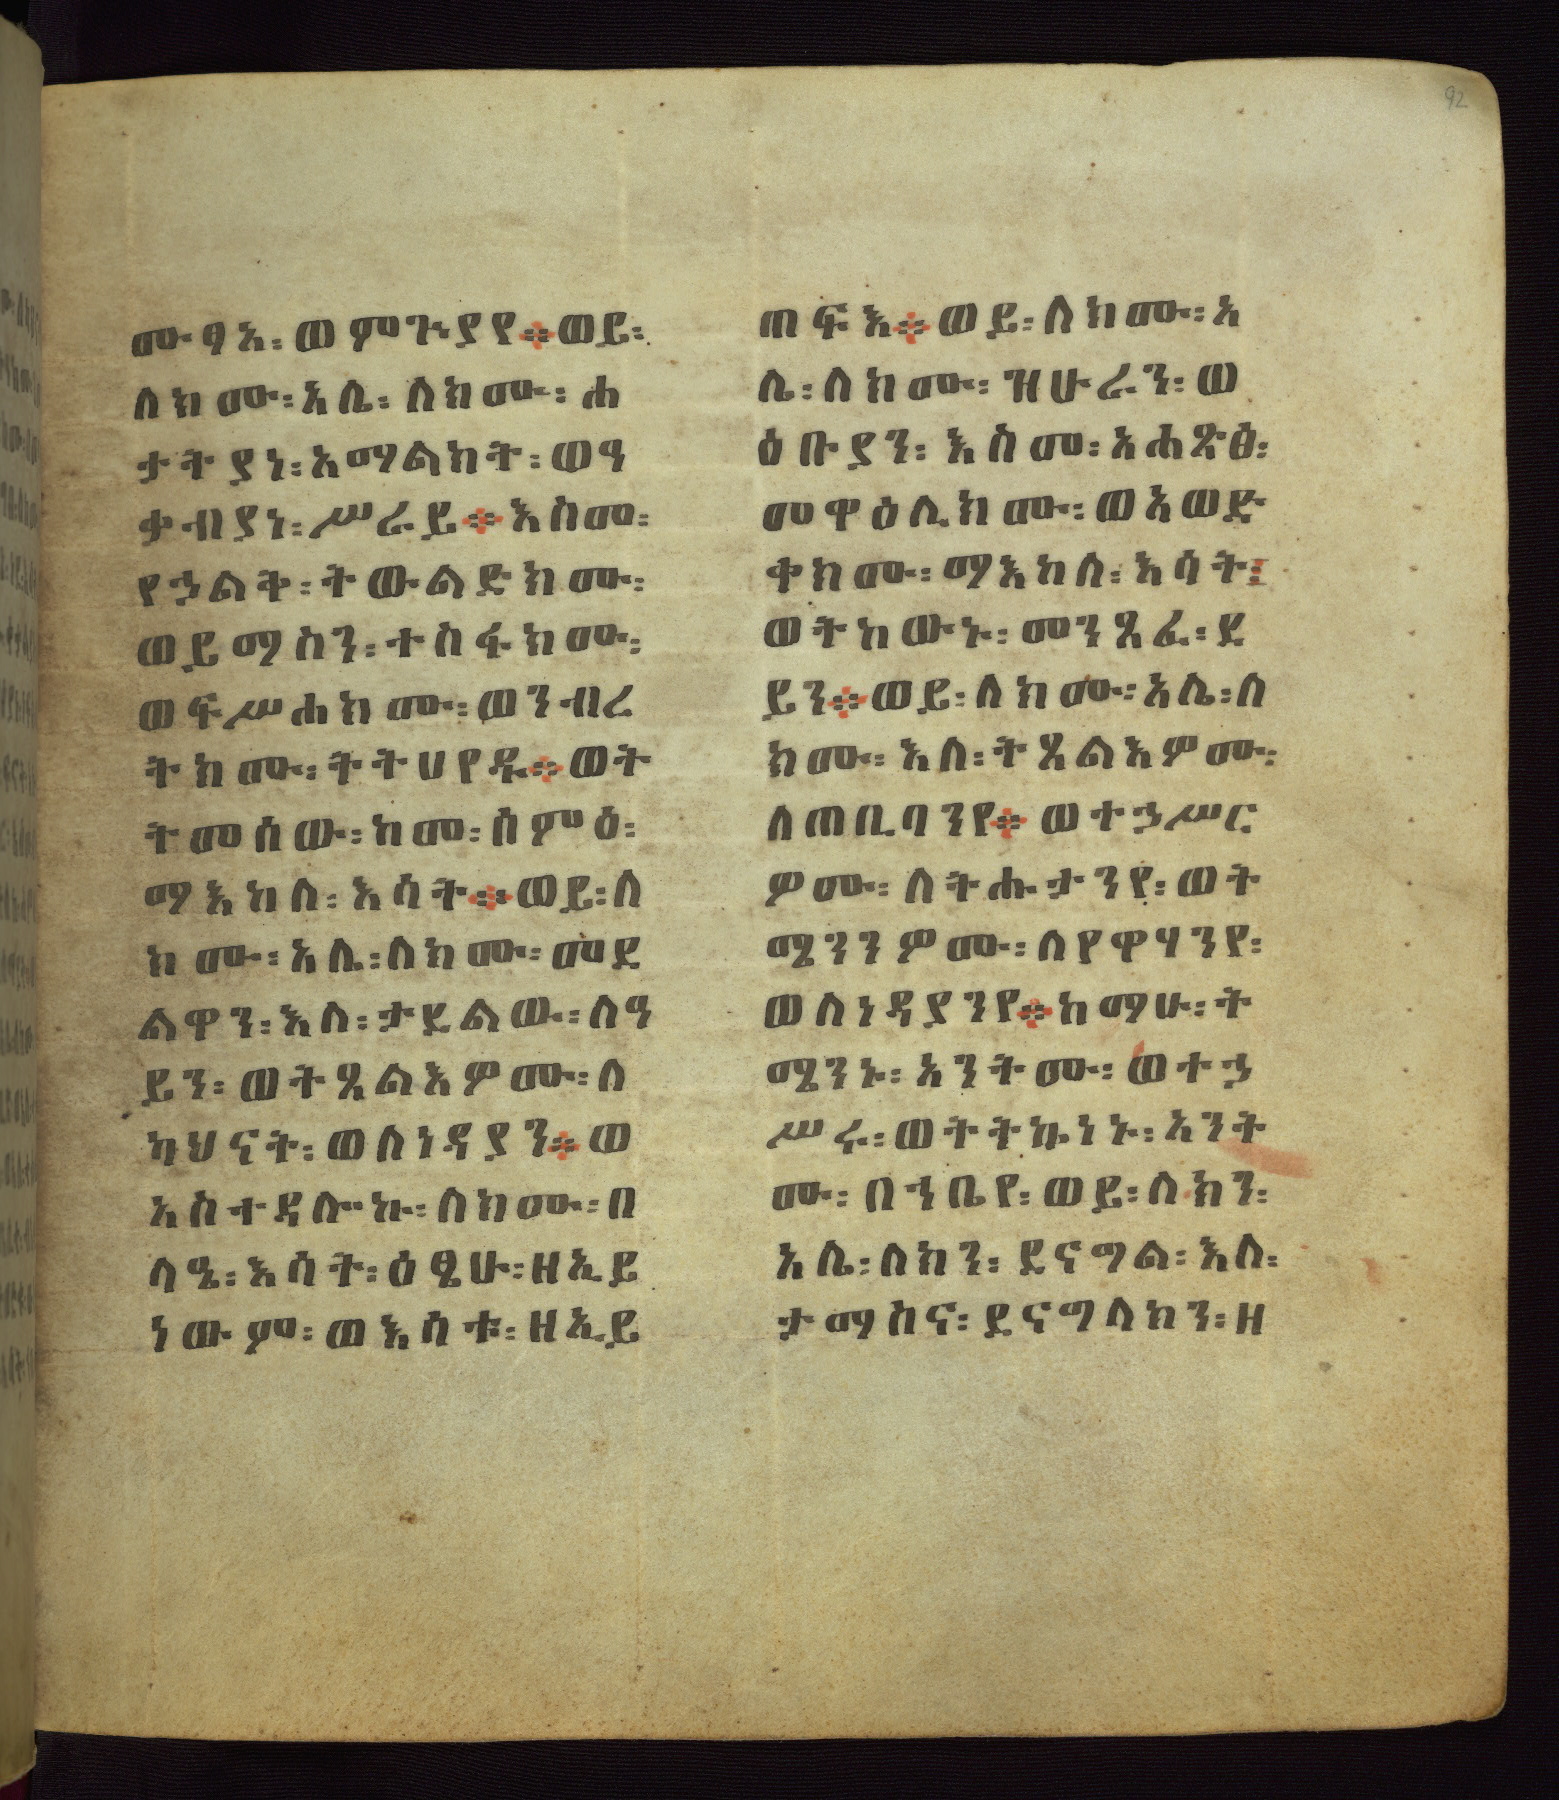 92
ሙፃእ፡ወምጕያየ፨ወይ፡
ለክሙ፡እሌ፡ለክሙ፡ሐ
ታትያነ፡አማልክት፡ወዓ
ቃብያነ፡ሥራይ፨እስመ፡
የኃልቅ፡ትውልድክሙ፡
ወይማስን፡ተስፋክሙ፡
ወፍሥሐክሙ፡ወንብረ
ትክሙ፡ትትሀየዱ፨ወት
ትመሰው፡ከመ፡ሰምዕ፡
ማእከለ፡እሳት፨ወይ፡ለ
ክሙ፡አሌ፡ለክሙ፡መደ
ልዋን፡እለ፡ታደልው፡ለዓ
ይን፡ወትጼልእዎሙ፡ለ
ካህናት፡ወለነዳያን፨ወ
አስተዳሎኩ፡ለክሙ፡በ
ላዔ፡እሳት፡ዕፄሁ፡ዘኢይ
ነውም፡ወእሳቱ፡ዘኢይ
ጠፍእ፨ወይ፡ለክሙ፡አ
ሌ፡ለክሙ፡ዝሁራን፡ወ
ዕቡያን፡እስመ፡አሐጽፅ፡
መዋዕሊክሙ፡ወአወድ
ቀክሙ፡ማእከለ፡እሳት፡
ወትከውኑ፡መንጸፈ፡ደ
ይን፨ወይ፡ለክሙ፡አሌ፡ለ
ክሙ፡እለ፡ትጼልእዎሙ፡
ለጠቢባንየ፨ወተኃሥር
ዎሙ፡ለትሑታንየ፡ወት
ሜንንዎሙ፡ለየዋሃንየ፡
ወለነዳያንየ፨ከማሁ፡ት
ሜንኑ፡አንትሙ፡ወተኃ
ሥሩ፡ወትትኴነኑ፡አንት
ሙ፡በኀቤየ፡ወይ፡ለክን፡
አሌ፡ለክን፡ደናግል፡እለ፡
ታማስና፡ድናግላክን፡ዘ